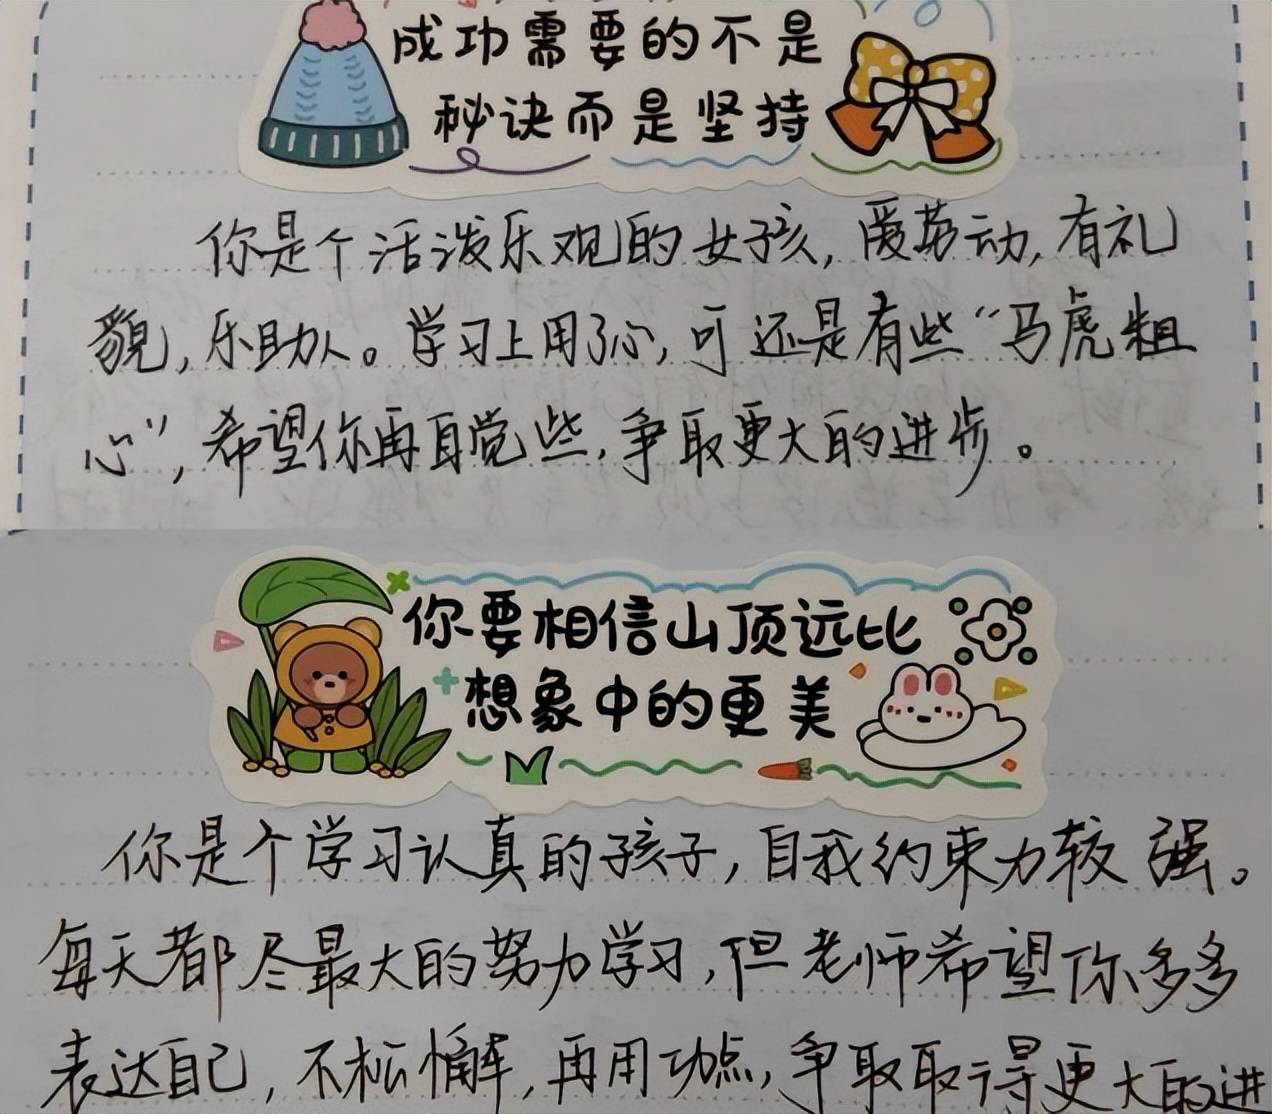 成功需要的不是
秘诀而是坚持
你是个活泼乐观的女孩，爱劳动，有礼
貌，乐助人。学习上用了心，可还是有些“马虎粗
心”，希望你再自觉些，争取更大的进步。
你要相信山顶远比
想象中的更美
你是个学习认真的孩子，自我约束力较强。
每天都尽最大的努力学习，但老师希望你多多
表达自己，不松懈，再用功点，争取取得更大的进